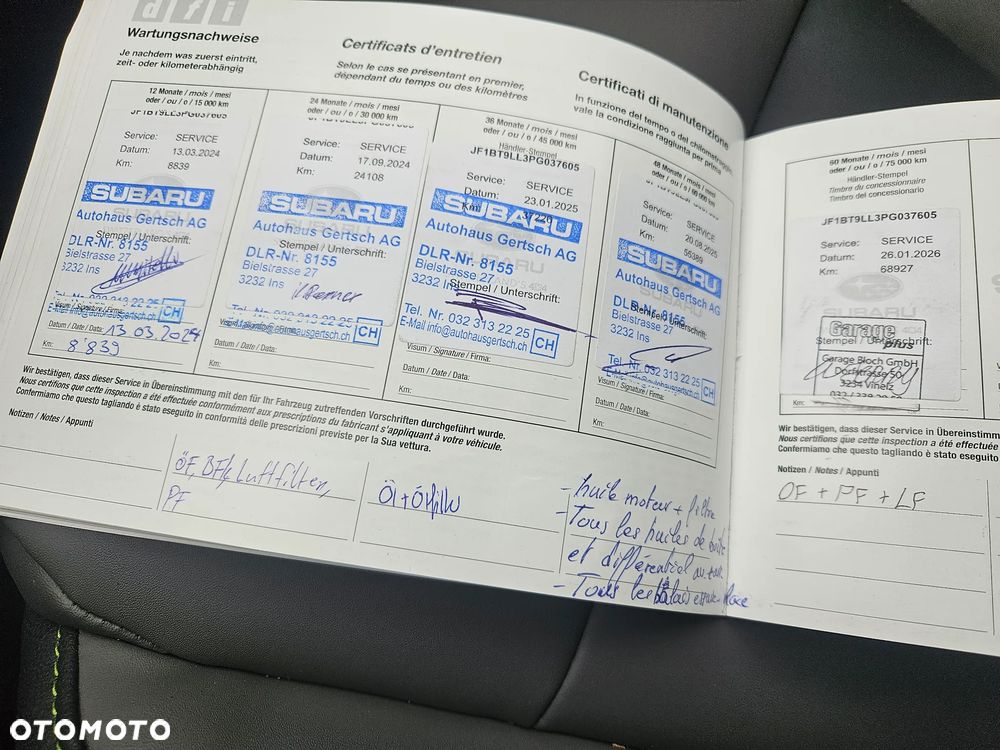 dfi
Wartungsnachweise
Je nachdem was zuerst eintritt,
zeit- oder kilometerabhängig
Certificats d'entretien
Selon le cas se présentant en premier,
dépendant du temps ou des kilomètres
Certificati di manutenzione
In funzione del tempo o dei chilometraggio,
vale la condizione raggiunta per prima
12 Monate / mois / mesi
oder / ou / o / 15 000 km
JF1BT9LL3PG037605
Service: SERVICE
Datum: 13.03.2024
Km: 8839
SUBARU
Autohaus Gertsch AG
Stempel / Unterschrift:
DLR-Nr. 8155
Bielstrasse 27
3232 Ins
CH
Visum / Signature / Firma:
Datum / Date / Data: 13.03.2024
Km: 8'839
24 Monate / mois / mesi
oder / ou / o / 30 000 km
Service: SERVICE
Datum: 17.09.2024
Km: 24108
SUBARU
Autohaus Gertsch AG
Stempel / Unterschrift:
DLR-Nr. 8155
Bielstrasse 27
3232 Ins
CH
Datum / Date / Data:
Km:
36 Monate / mois / mesi
oder / ou / o / 45 000 km
Händler-Stempel
JF1BT9LL3PG037605
Service: SERVICE
Datum: 23.01.2025
Km: 37220
SUBARU
Autohaus Gertsch AG
DLR-Nr. 8155
Bielstrasse 27
3232 Ins
Stempel / Unterschrift:
Tel. Nr. 032 313 22 25
E-Mail info@autohausgertsch.ch
CH
Visum / Signature / Firma:
Datum / Date / Data:
Km:
48 Monate / mois / mesi
oder / ou / o / 60 000 km
Service: SERVICE
Datum: 20.08.2025
Km:
SUBARU
Autohaus Gertsch AG
DLR-Nr. 8155
Bielstrasse 27
3232 Ins
Tel. Nr. 032 313 22 25
CH
Visum / Signature / Firma:
Datum / Date / Data:
Km:
Wir bestätigen, dass dieser Service in Übereinstimmung mit den für Ihr Fahrzeug zutreffenden Vorschriften durchgeführt wurde.
Nous certifions que cette inspection a été effectuée conformément aux prescriptions du fabricant s'appliquant à votre véhicule.
Confermiamo che questo tagliando è stato eseguito in conformità delle prescrizioni previste per la Sua vettura.
Notizen / Notes / Appunti
ÖF, BFl, Luftfilter,
PF
- huile moteur + filtre
- Tous les huiles de
et différentiel
- Tous les
60 Monate / mois / mesi
oder / ou / o / 75 000 km
Händler-Stempel
Timbre du concessionnaire
Timbro del concessionario
JF1BT9LL3PG037605
Service: SERVICE
Datum: 26.01.2026
Km: 68927
Garage
plus
Stempel / Unterschrift:
Garage Bloch GmbH
Dorfstrasse 50
3234 Vinelz
Km:
Wir bestätigen, dass dieser Service in Übereinstimm
Nous certifions que cette inspection a été effectuée
Confermiamo che questo tagliando è stato eseguito
Notizen / Notes / Appunti
OF + PF + LF
OTOMOTO